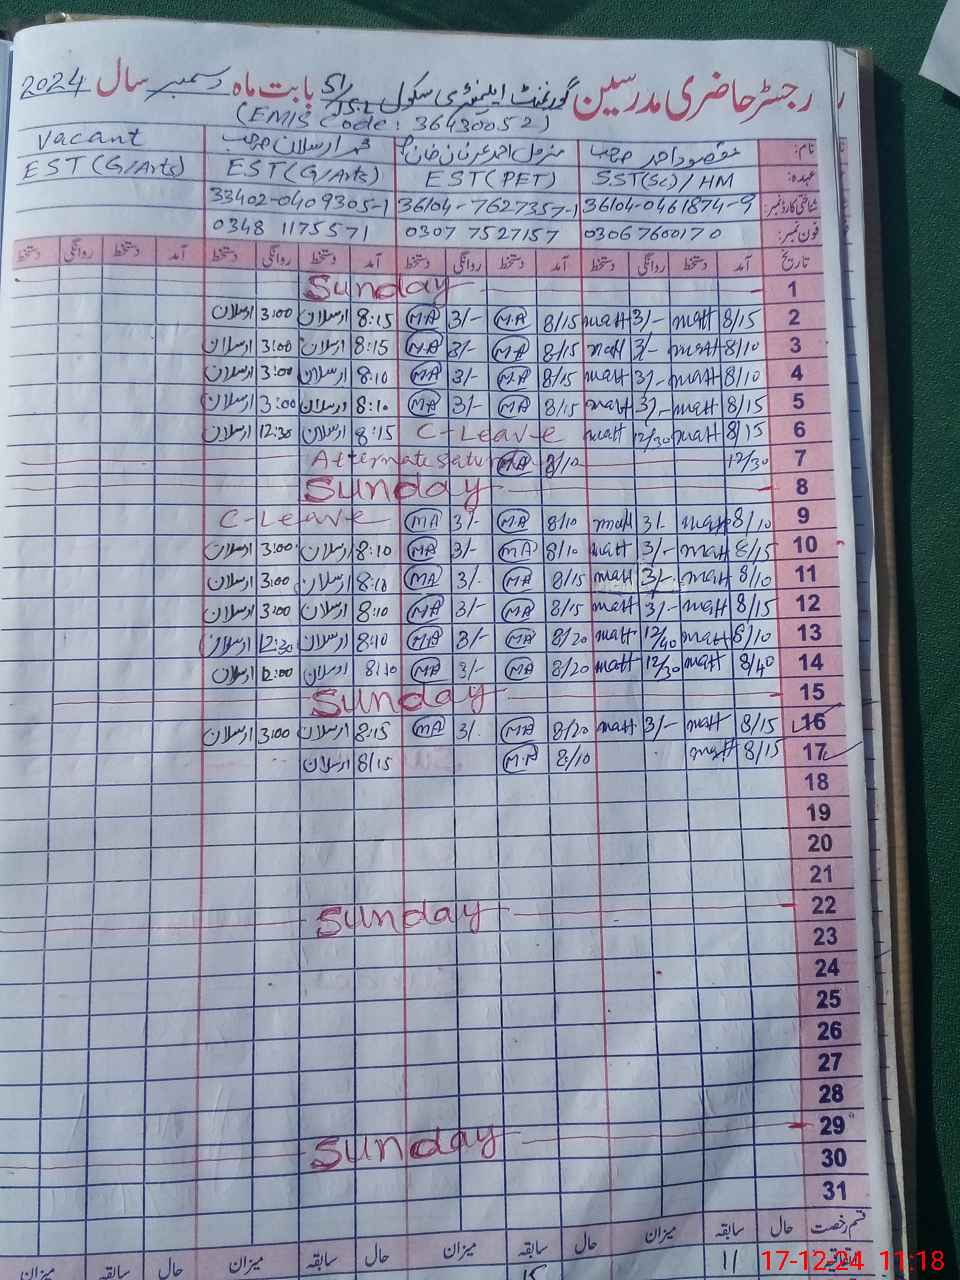 رجسٹر حاضری مدرسین گورنمنٹ ایلیمنٹری سکول 51/15-L بابت ماہ دسمبر سال 2024
(EMIS Code: 36430052)
نام: مقصود احمد صاحب Vacant
عہدہ: SST(Sc)/HM EST(PET) EST(G/Arts) EST(G/Arts)
شناختی کارڈ نمبر: 36104-0461874-9 36104-7627357-1 33402-0409305-1
فون نمبر: 03067600170 0307 7527157 0348 1175571
تاریخ آمد دستخط روانگی دستخط آمد دستخط روانگی دستخط آمد دستخط روانگی دستخط آمد دستخط روانگی دستخط
1 Sunday
2 8/15 matt 3/- matt 8/15 MA 3/- MA 8:15 ارسلان 3:00 ارسلان
3 8/10 matt 3/- matt 8/15 MA 3/- MA 8:15 ارسلان 3:00 ارسلان
4 8/10 matt 3/- matt 8/15 MA 3/- MA 8:10 ارسلان 3:00 ارسلان
5 8/15 matt 3/- matt 8/15 MA 3/- MA 8:10 ارسلان 3:00 ارسلان
6 8/15 matt 12/30 matt C-Leave 8:15 ارسلان 12:30 ارسلان
7 12/30 8/10 MA
8 Sunday
9 8/10 matt 3/- matt 8/10 MA 3/- MA C-Leave
10 8/15 matt 3/- matt 8/10 MA 3/- MA 8:10 ارسلان 3:00 ارسلان
11 8/10 matt 3/- matt 8/15 MA 3/- MA 8:10 ارسلان 3:00 ارسلان
12 8/15 matt 3/- matt 8/15 MA 3/- MA 8:10 ارسلان 3:00 ارسلان
13 8/10 matt 12/40 matt 8/20 MA 3/- MA 8:10 ارسلان 12:30 ارسلان
14 8/40 matt 12/30 matt 8/20 MA 3/- MA 8:10 ارسلان 12:00 ارسلان
15 Sunday
16 8/15 matt 3/- matt 8/20 MA 3/- MA 8:15 ارسلان 3:00 ارسلان
17 8/15 matt 8/10 MA 8/15 ارسلان
18
19
20
21
22 Sunday
23
24
25
26
27
28
29 Sunday
30
31
قسم رخصت حال سابقہ میزان حال سابقہ میزان حال سابقہ میزان
اتفاقیہ 11
17-12-24 11:18